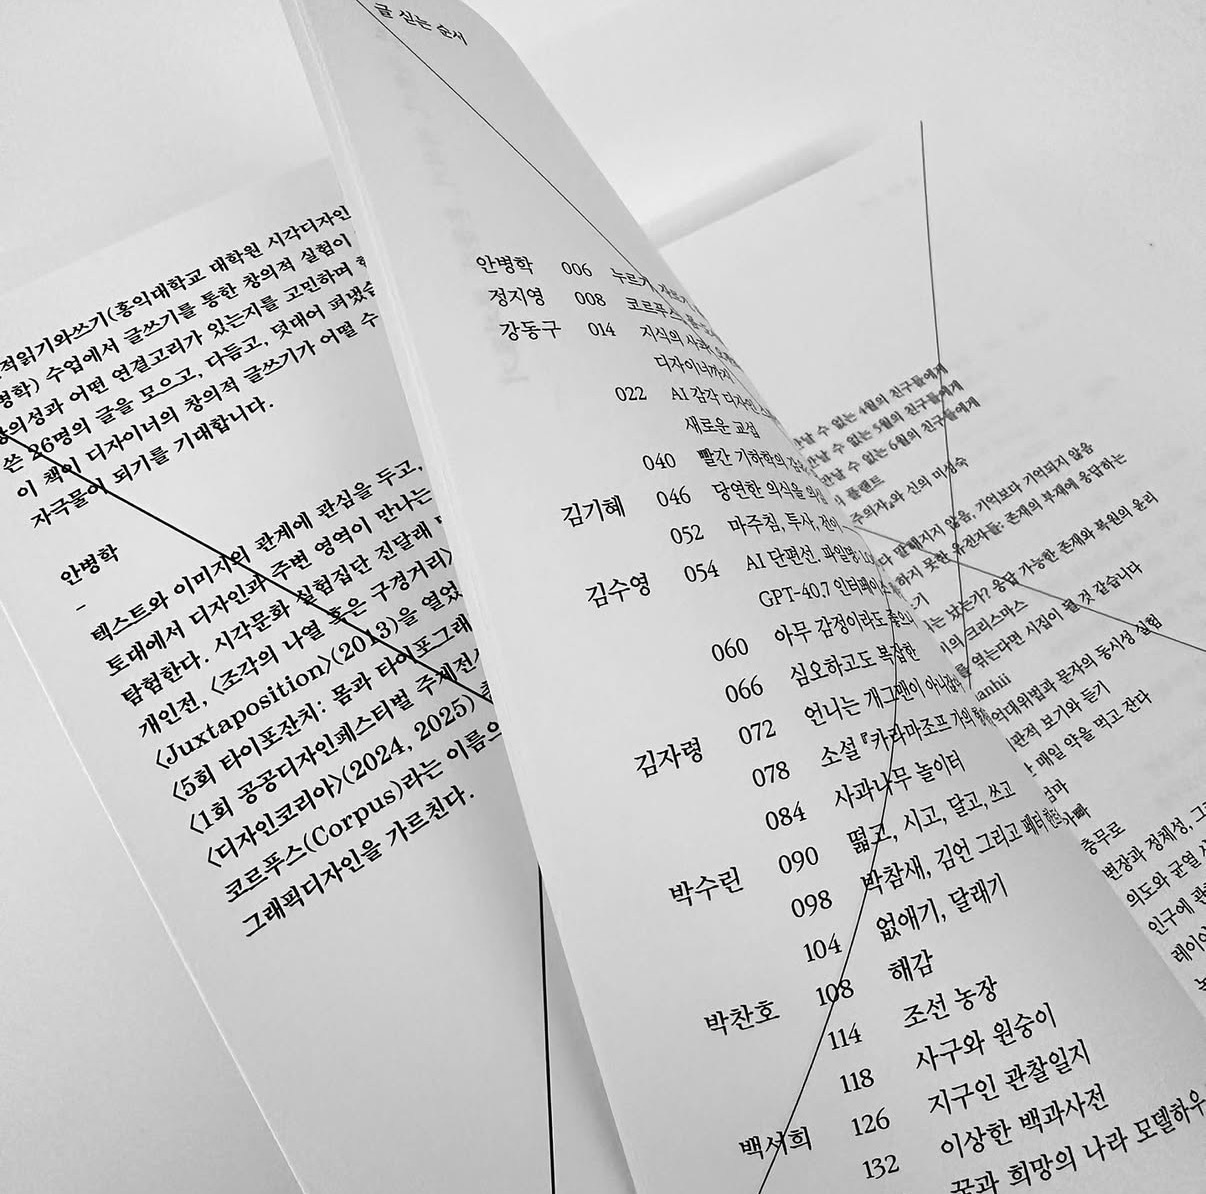 적읽기와쓰기(홍익대학교 대학원 시각디자인
수업에서 글쓰기를 통한 창의적 실험이
창의성과 어떤 연결고리가 있는지를 고민하며
쓴 26명의 글을 모으고, 다듬고, 덧대어 펴냈습
이 책이 디자이너의 창의적 글쓰기가 어떨 수
자극물이 되기를 기대합니다.
안병학
–
텍스트와 이미지의 관계에 관심을 두고,
토대에서 디자인과 주변 영역이 만나는
탐험한다. 시각문화 실험집단 진달래
개인전, <조각의 나열 혹은 구경거리>
<Juxtaposition>(2013)을 열었
<5회 타이포잔치: 몸과 타이포그래
<1회 공공디자인페스티벌 주제전시
<디자인코리아>(2024, 2025)
코르푸스(Corpus)라는 이름으
그래픽디자인을 가르친다.
글 싣는 순서
안병학 006 누르기
정지영 008 코르푸스
강동구 014 지식의
디자이너까지
022 AI 감각 디자인
새로운 교섭
040 빨간 기하학의
김기혜 046 당연한 의식을
052 마주침, 투사, 전이
김수영 054 AI 단편선. 파일명
GPT-40.7 인터페이스
060 아무 감정이라도
066 심오하고도 복잡한
김자령 072 언니는 개그맨이 아니잖아
078 소설 『카라마조프 가의
084 사과나무 놀이터
박수린 090 떫고, 시고, 달고, 쓰고
098 박참새, 김언 그리고 페터
104 없애기, 달래기
박찬호 108 해감
114 조선 농장
118 사구와 원숭이
백서희 126 지구인 관찰일지
132 이상한 백과사전
꿈과 희망의 나라 모델하우
만날 수 없는 4월의 친구들에게
만날 수 없는 5월의 친구들에게
만날 수 없는 6월의 친구들에게
플랜트
주의자』와 신의 미성숙
말해지지 않음, 기억보다 기억되지 않음
하지 못한 유전자들: 존재의 부재에 응답하는
는 났는가? 응답 가능한 존재와 복원의 윤리
의 크리스마스
엮는다면 시집이 될 것 같습니다
anhii
대위법과 문자의 동시성 실험
관적 보기와 듣기
매일 약을 먹고 잔다
엄마
아빠
충무로
변장과 정체성, 그
의도와 균열
인구에
레이어